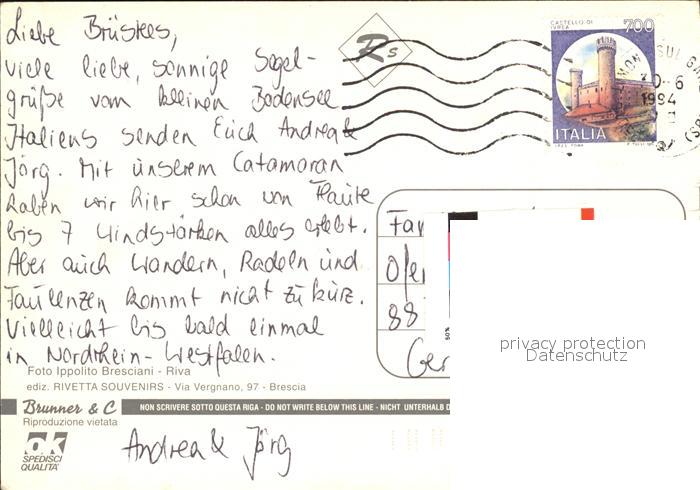 Liebe Brüskes,
viele liebe, sonnige Segel-
grüße vom kleinen Bodensee
Italiens senden Euch Andrea &
Jörg. Mit unserem Catamaran
haben wir hier schon von Flaute
bis 7 Windstärken alles erlebt.
Aber auch Wandern, Radeln und
Faulenzen kommt nicht zu kurz.
Vielleicht bis bald einmal
in Nordrhein-Westfalen.
Andrea & Jörg
Foto Ippolito Bresciani - Riva
ediz. RIVETTA SOUVENIRS - Via Vergnano, 97 - Brescia
Brunner & C
Riproduzione vietata
NON SCRIVERE SOTTO QUESTA RIGA - DO NOT WRITE BELOW THIS LINE - NICHT UNTERHALB D
ok
SPEDISCI
QUALITA'
Rs
CASTELLO DI
IVREA
700
ITALIA
1994
Fam
88
Ger
50%
privacy protection
Datenschutz